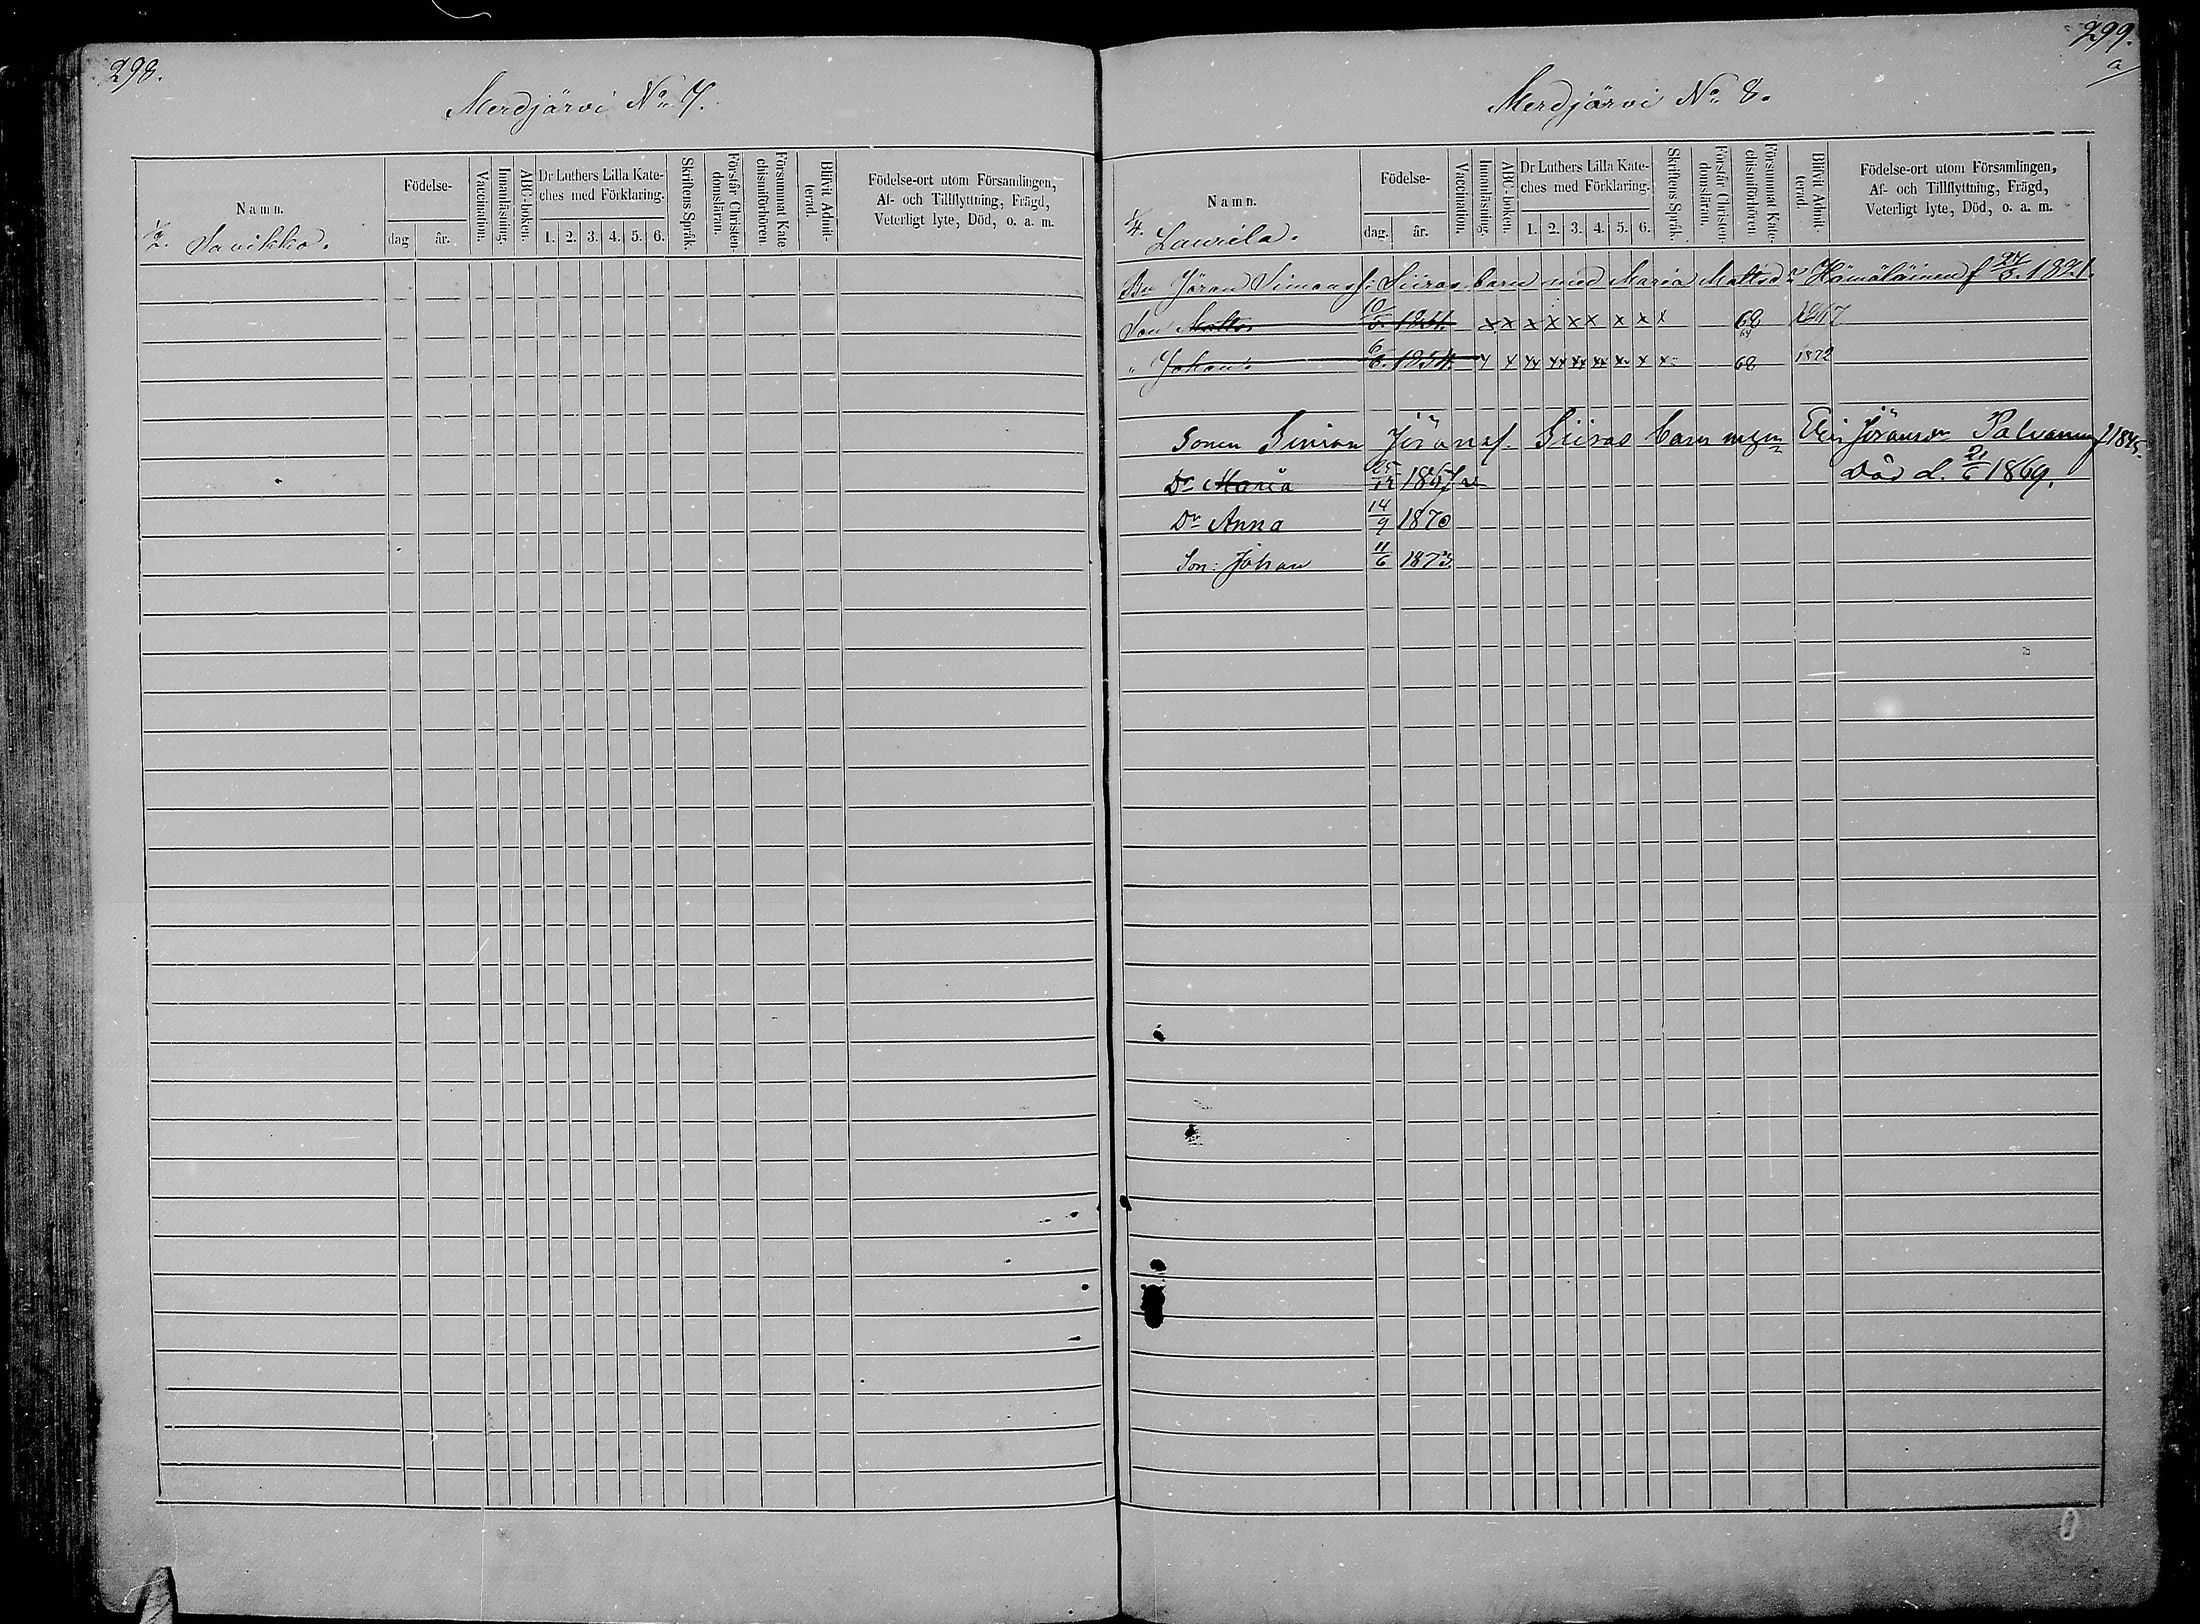 298.
Merdjärvi No 7.
Namn.
1/2. Savikko.
Födelse-
dag
år.
Vaccination.
Innanläsning.
ABC-boken.
Dr Luthers Lilla Kate-
ches med Förklaring.
1. 2. 3. 4. 5. 6.
Skriftens Språk.
Förstår Christen-
domsläran.
Försummat Kate-
chismiförhören
Blivit Admit-
terad.
Födelse-ort utom Församlingen,
Af- och Tillflyttning, Frägd,
Veterligt lyte, Död, o. a. m.
299.
a
Merdjärvi No 8.
Namn.
1/4. Laurila.
Födelse-
dag.
år.
Vaccination.
Innanläsning.
ABC-boken.
Dr Luthers Lilla Kate-
ches med Förklaring.
1. 2. 3. 4. 5. 6.
Skriftens Språk.
Förstår Christen-
domsläran.
Försummat Kate-
chismiförhören
Blivit Admit-
terad.
Födelse-ort utom Församlingen,
Af- och Tillflyttning, Frägd,
Veterligt lyte, Död, o. a. m.
Jöran Simonss: Siiras barn med Maria Mattsdr Hämäläinen f 1821.
Son Matts 1851. x x x x x x x x x 68 1867
" Johan 6/5. 1854. x x x x x x x x x 68 1872
Sonen Simon Jöranss. Siiras barn Jöransdr f 1845.
Dr Maria 25/12 1867 Död d. 21/6 1869.
Dr Anna 14/9 1870
Son: Johan 11/6 1873